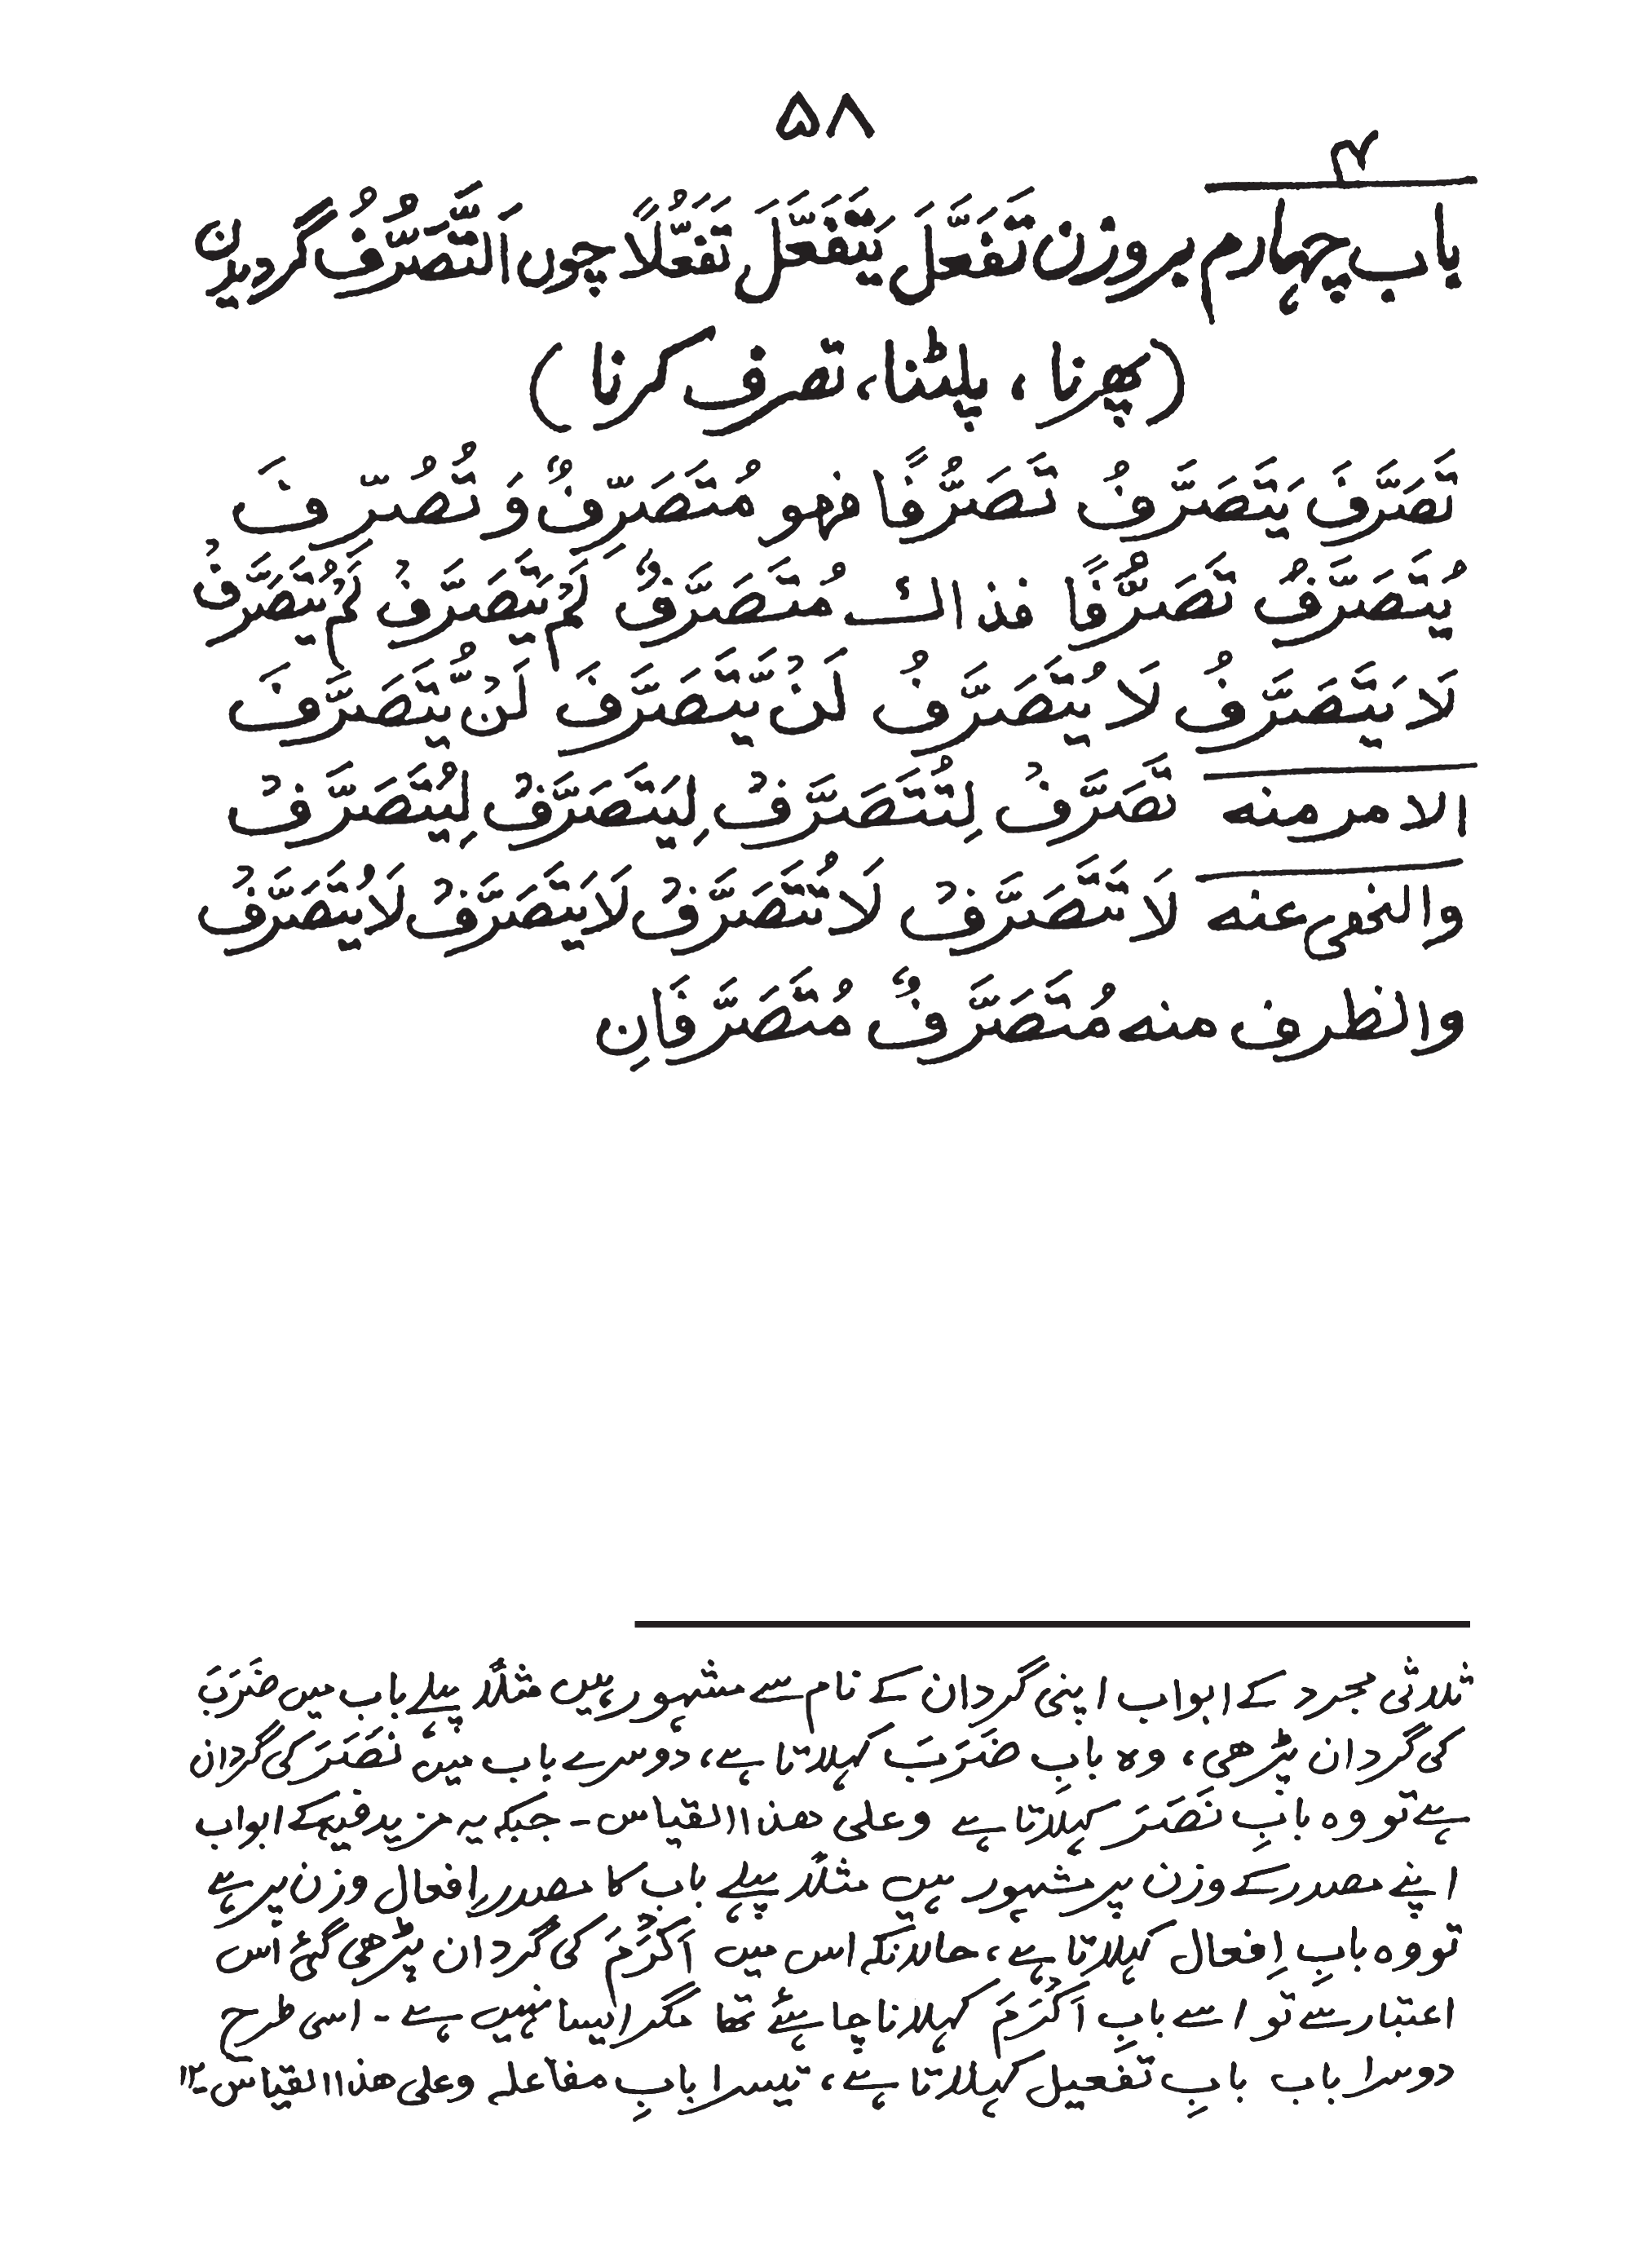 ۵۸
۴
باب چہارم بروزن تَفَعَّلَ يَتَفَعَّلَ تَفَعُّلًا چوں اَلتَّصَرُّفُ گردیدن
(پھرنا ، پلٹنا، تصرف کرنا )
تَصَرَّفَ يَتَصَرَّفُ تَصَرُّفًا فهو مُتَصَرِّفٌ وَ تُصُرِّفَ
يُتَصَرَّفُ تَصَرُّفًا فذاك مُتَصَرَّفٌ لَمْ يَتَصَرَّفْ لَمْ يُتَصَرَّفْ
لَا يَتَصَرَّفُ لَا يُتَصَرَّفُ لَنْ يَّتَصَرَّفَ لَنْ يُّتَصَرَّفَ
الامر منه تَصَرَّفْ لِتُتَصَرَّفْ لِيَتَصَرَّفْ لِيُتَصَرَّفْ
والنهى عنه لَا تَتَصَرَّفْ لَا تُتَصَرَّفْ لَا يَتَصَرَّفْ لَا يُتَصَرَّفْ
والظرف منه مُتَصَرَّفٌ مُتَصَرَّفَانِ
ثلاثی مجرد کے ابواب اپنی گردان کے نام سے مشہور ہیں مثلاً پہلے باب میں ضَرَبَ
کی گردان پڑھی، وہ بابِ ضَرَبَ کہلاتا ہے، دوسرے باب میں نَصَرَ کی گردان
ہے تو وہ بابِ نَصَرَ کہلاتا ہے وعلی ھذا القیاس - جبکہ یہ مزید فیہ کے ابواب
اپنے مصدر کے وزن پر مشہور ہیں مثلاً پہلے باب کا مصدر اِفعال وزن پر ہے
تو وہ بابِ اِفعال کہلاتا ہے، حالانکہ اس میں اَکْرَمَ کی گردان پڑھی گئی اُس
اعتبار سے تو اسے بابِ اَکْرَمَ کہلانا چاہئے تھا مگر ایسا نہیں ہے - اسی طرح
دوسرا باب بابِ تفعیل کہلاتا ہے، تیسرا بابِ مفاعلہ وعلی ھذا القیاس - ۱۲